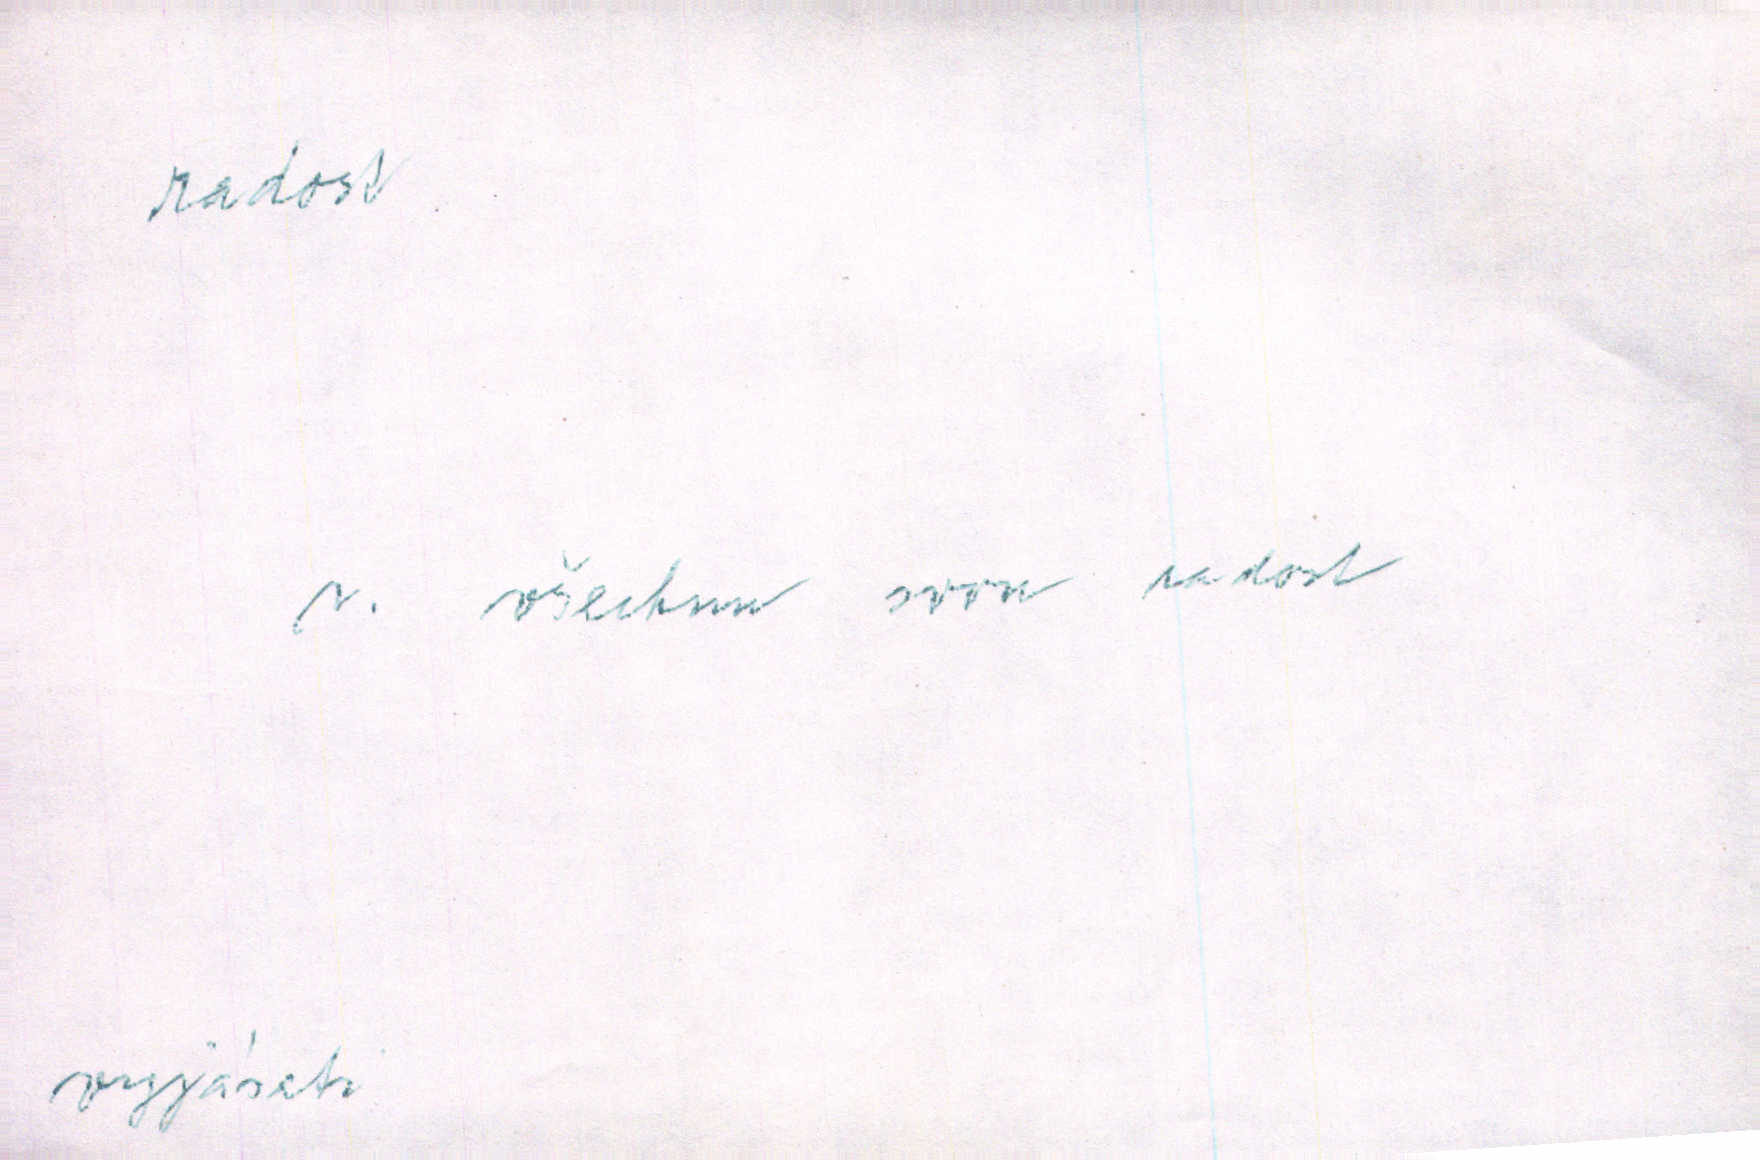 radost
v. všechnu svou radost
vyjásati